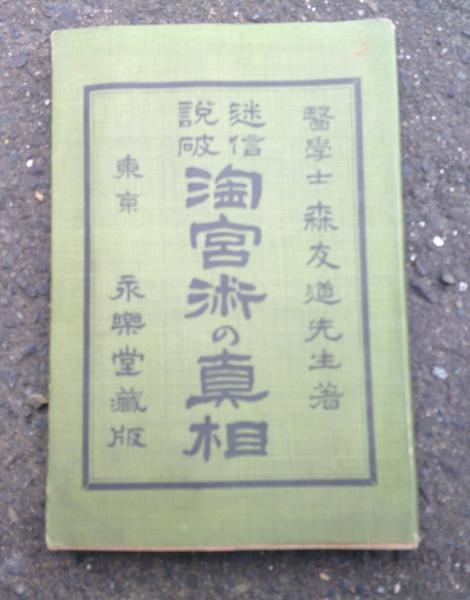 醫學士 森友道先生著
迷信
說破
淘宮術の真相
東京 永樂堂藏版